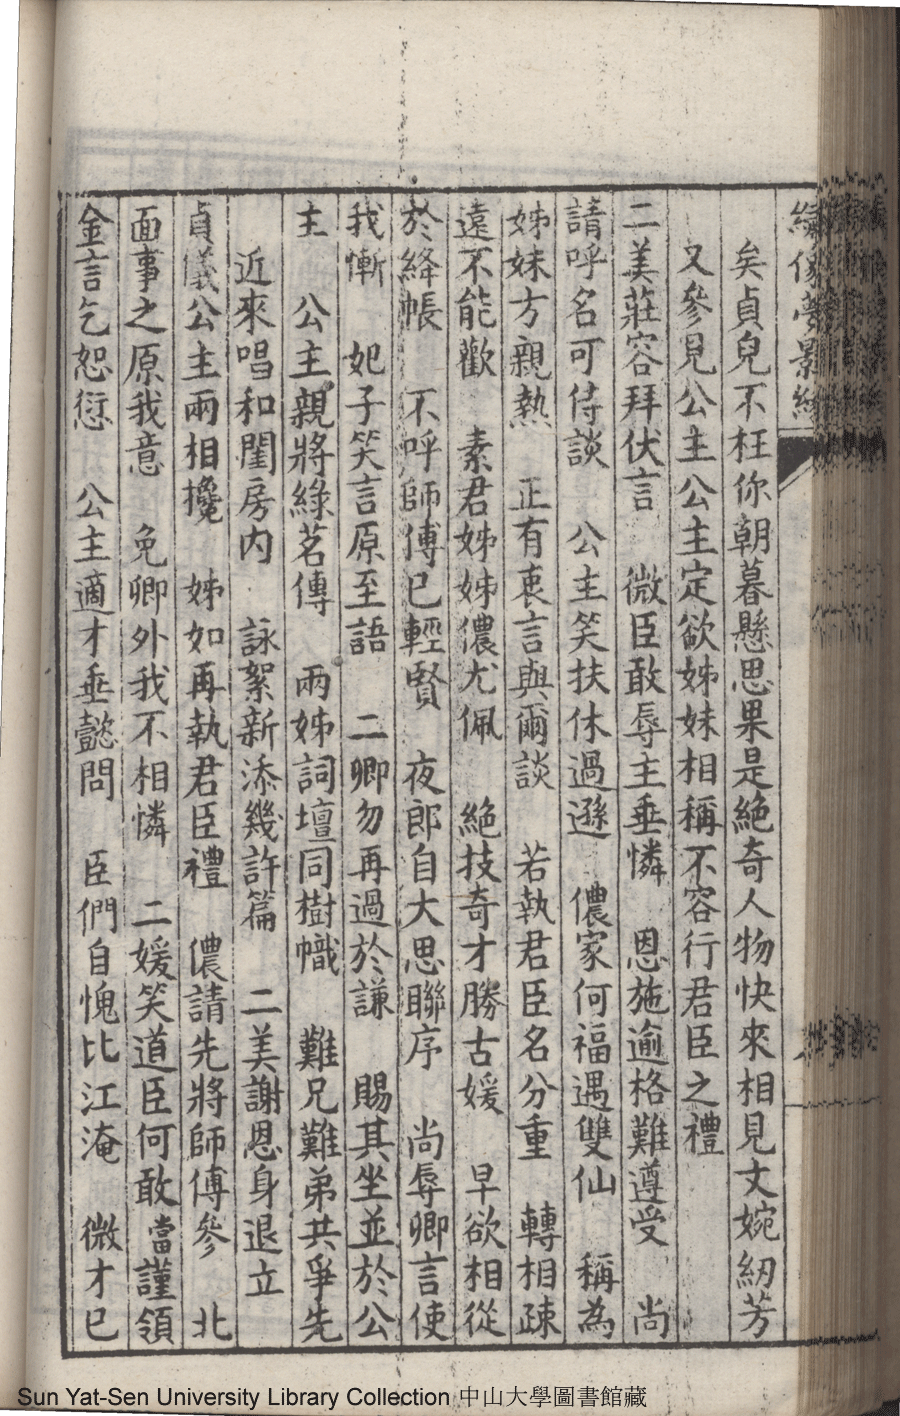 繡像夢影緣
矣貞兒不枉你朝暮懸思果是絕奇人物快來相見丈婉紉芳
又參見公主公主定欲姊妹相稱不容行君臣之禮
二美莊容拜伏言　微臣敢辱主垂憐　恩施逾格難遵受　尚
請呼名可侍談　公主笑扶休過遜　儂家何福遇雙仙　稱為
姊妹方親熱　正有衷言與爾談　若執君臣名分重　轉相疎
遠不能歡　素君姊姊儂尤佩　絕技奇才勝古媛　早欲相從
於絳帳　不呼師傅已輕賢　夜郎自大思聯序　尚辱卿言使
我慚　妃子笑言原至語　二卿勿再過於謙　賜其坐並於公
主　公主親將綠茗傳　兩姊詞壇同樹幟　難兄難弟共爭先
近來唱和閨房內　詠絮新添幾許篇　二美謝恩身退立
貞儀公主兩相攙　姊如再執君臣禮　儂請先將師傅參　北
面事之原我意　免卿外我不相憐　二媛笑道臣何敢當謹領
金言乞恕愆　公主適才垂懿問　臣們自愧比江淹　微才已
Sun Yat-Sen University Library Collection 中山大學圖書館藏